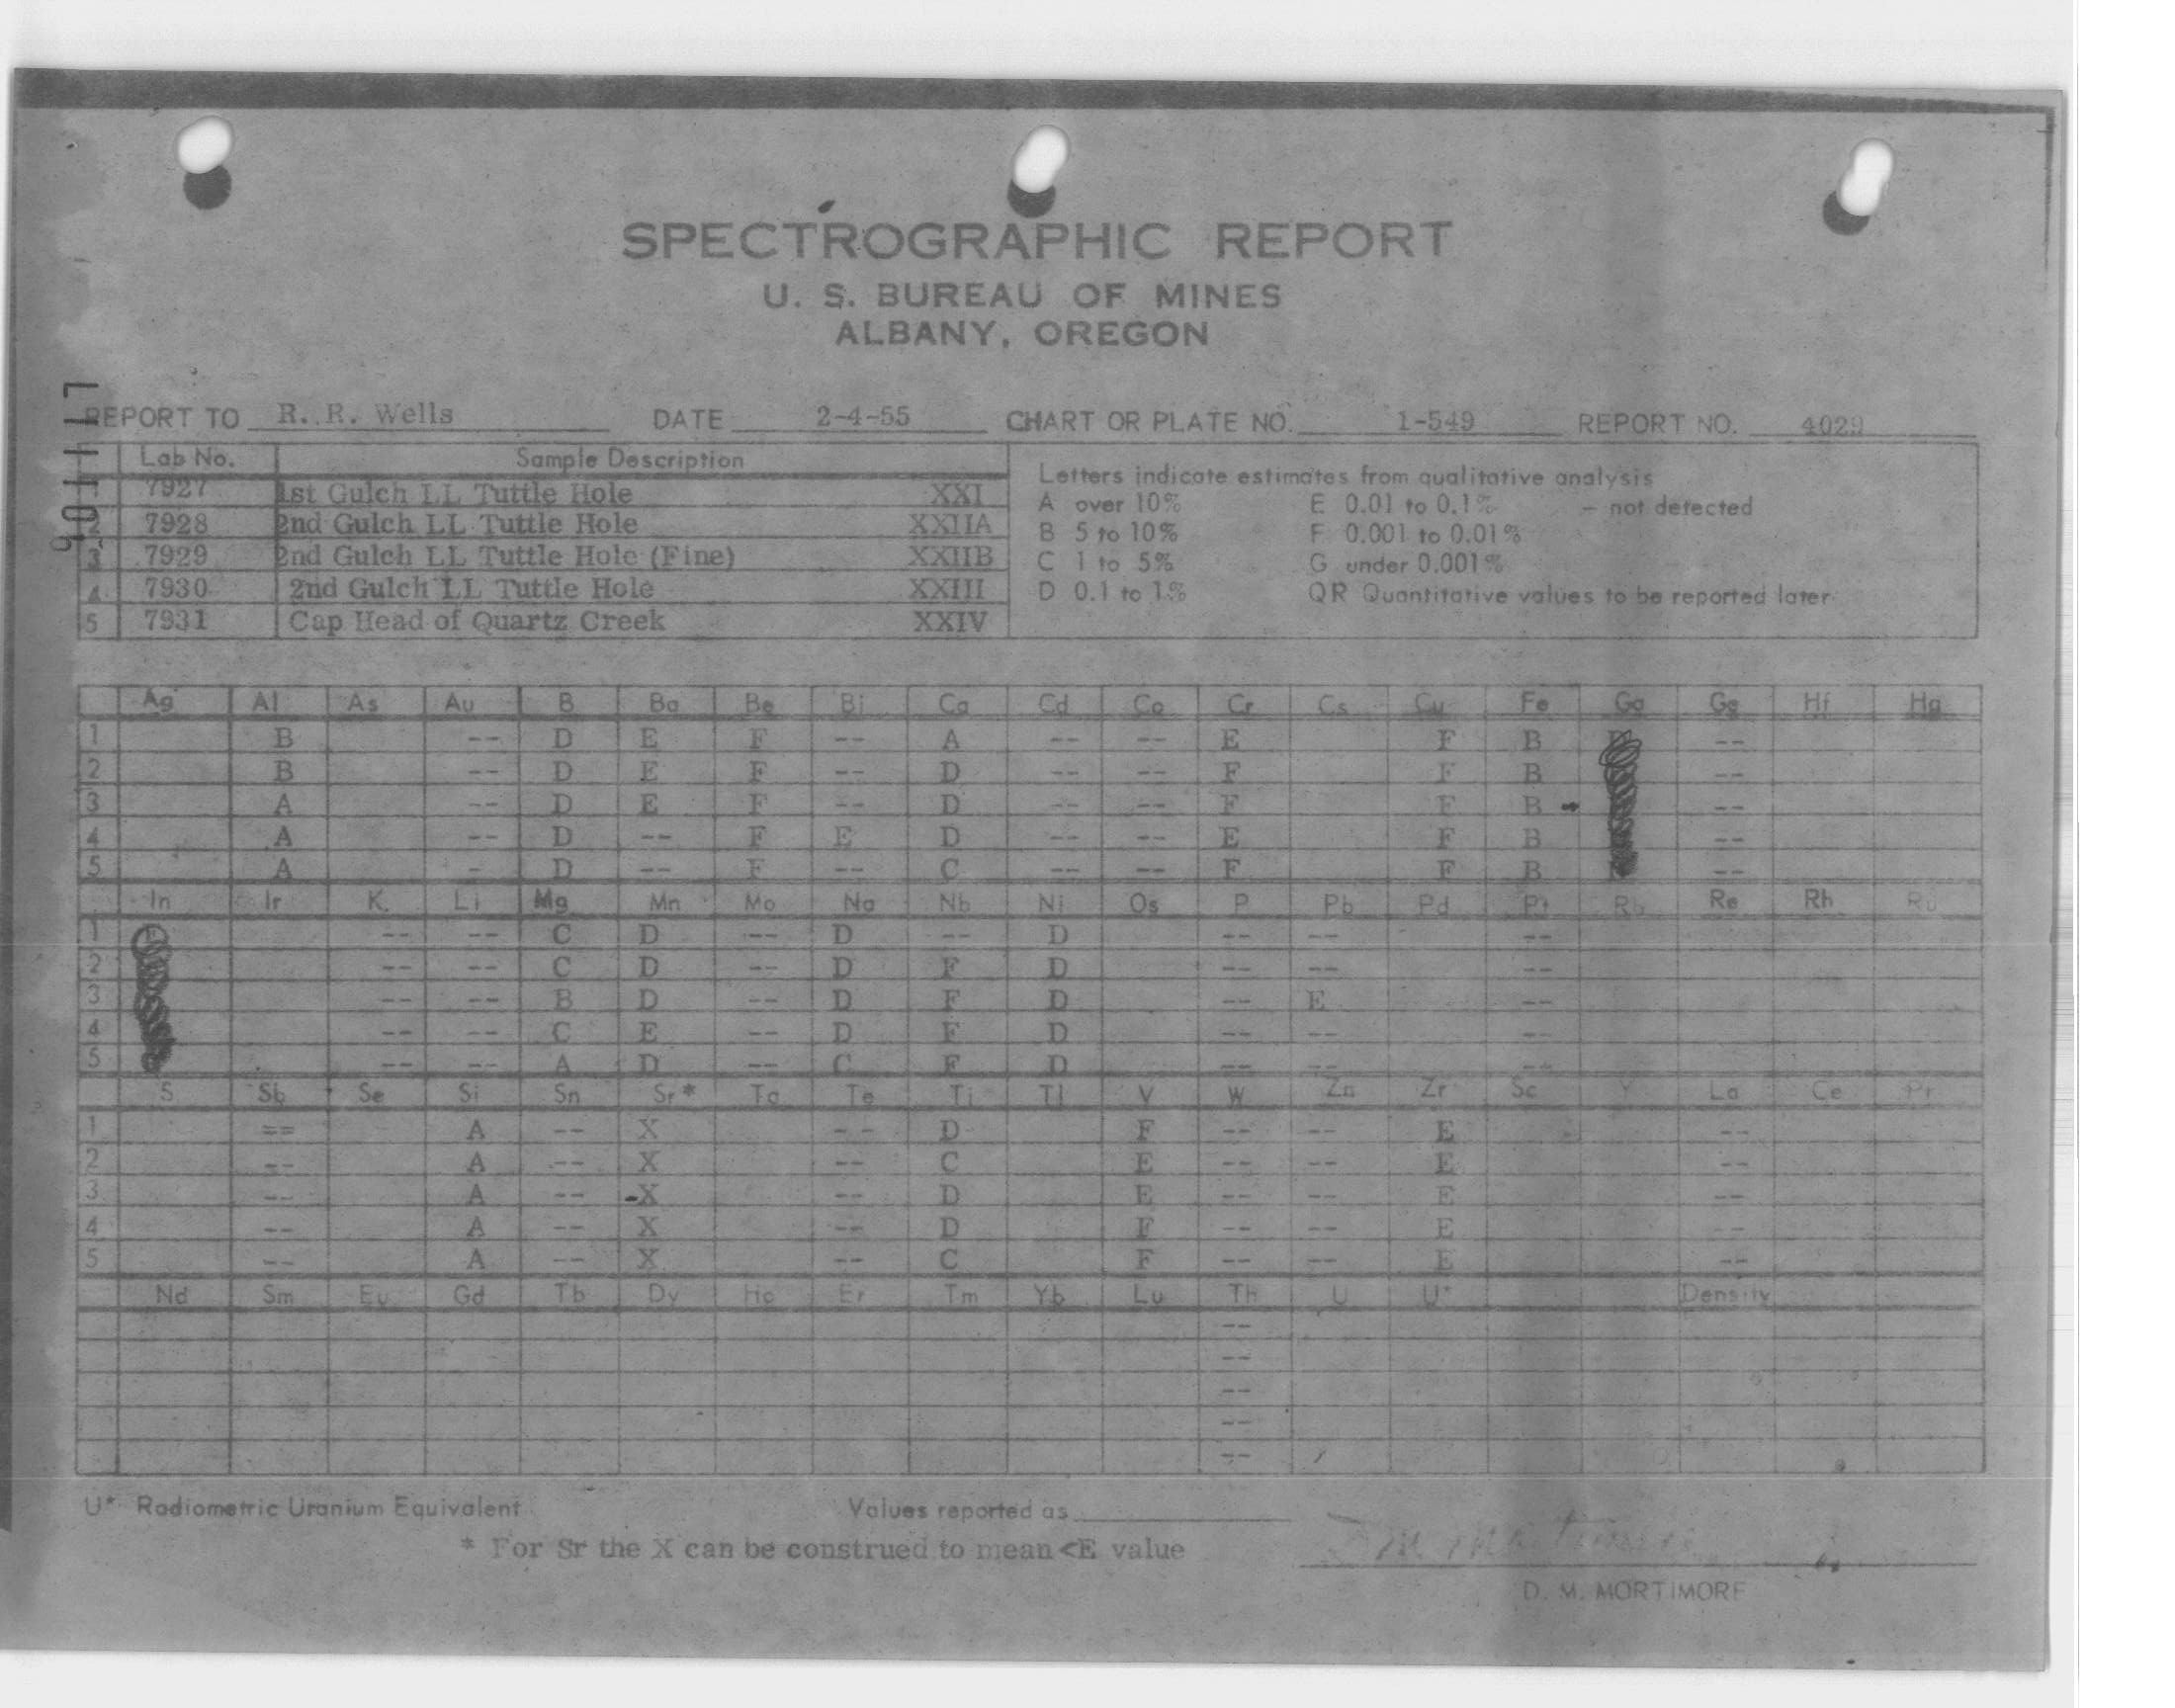 SPECTROGRAPHIC REPORT
U. S. BUREAU OF MINES
ALBANY, OREGON
REPORT TO R. R. Wells DATE 2-4-55 CHART OR PLATE NO. 1-549 REPORT NO. 4029
Lab No. Sample Description
7927 1st Gulch LL Tuttle Hole XXI
2 7928 2nd Gulch LL Tuttle Hole XXIIA
3 7929 2nd Gulch LL Tuttle Hole (Fine) XXIIB
4 7930 2nd Gulch LL Tuttle Hole XXIII
5 7931 Cap Head of Quartz Creek XXIV
Letters indicate estimates from qualitative analysis
A over 10% E 0.01 to 0.1% - not detected
B 5 to 10% F 0.001 to 0.01%
C 1 to 5% G under 0.001%
D 0.1 to 1% QR Quantitative values to be reported later
Ag Al As Au B Ba Be Bi Ca Cd Co Cr Cs Cu Fe Ga Ge Hf Hg
1 B -- D E F -- A -- -- E F B --
2 B -- D E F -- D -- -- F F B --
3 A -- D E F -- D -- -- F F B --
4 A -- D -- F E D -- -- E F B --
5 A - D -- F -- C -- -- F F B --
In Ir K Li Mg Mn Mo Na Nb Ni Os P Pb Pd Pt Rb Re Rh Ru
1 -- -- C D -- D -- D -- -- --
2 -- -- C D -- D F D -- -- --
3 -- -- B D -- D F D -- E --
4 -- -- C E -- D F D -- -- --
5 -- -- A D -- C F D -- -- --
S Sb Se Si Sn Sr* Ta Te Ti Tl V W Zn Zr Sc Y La Ce Pr
1 == A -- X -- D F -- -- E --
2 -- A -- X -- C E -- -- E --
3 -- A -- X -- D E -- -- E --
4 -- A -- X -- D F -- -- E --
5 -- A -- X -- C F -- -- E --
Nd Sm Eu Gd Tb Dy Ho Er Tm Yb Lu Th U U* Density
--
--
--
--
--
U* Radiometric Uranium Equivalent Values reported as
* For Sr the X can be construed to mean <E value
D. M. MORTIMORE